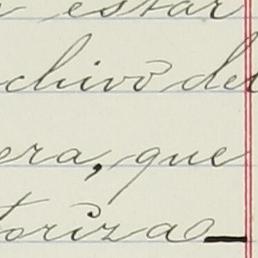 estar
chivo del
era, que
toriza